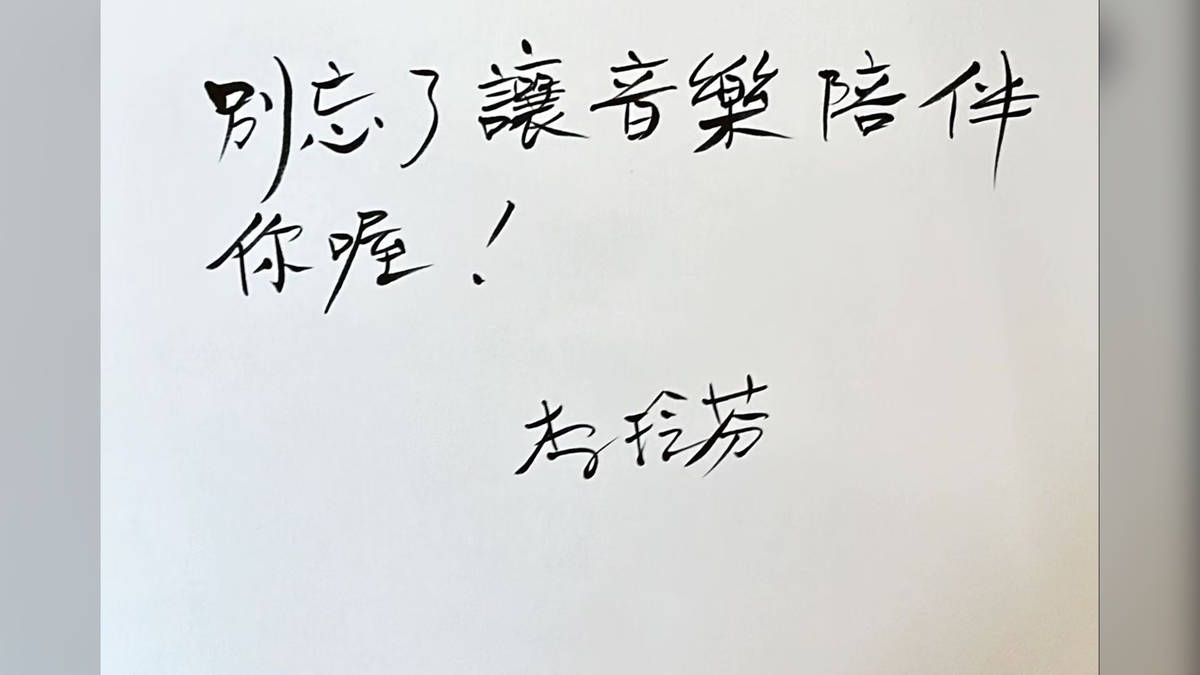 別忘了讓音樂陪伴
你喔！
李玲芬